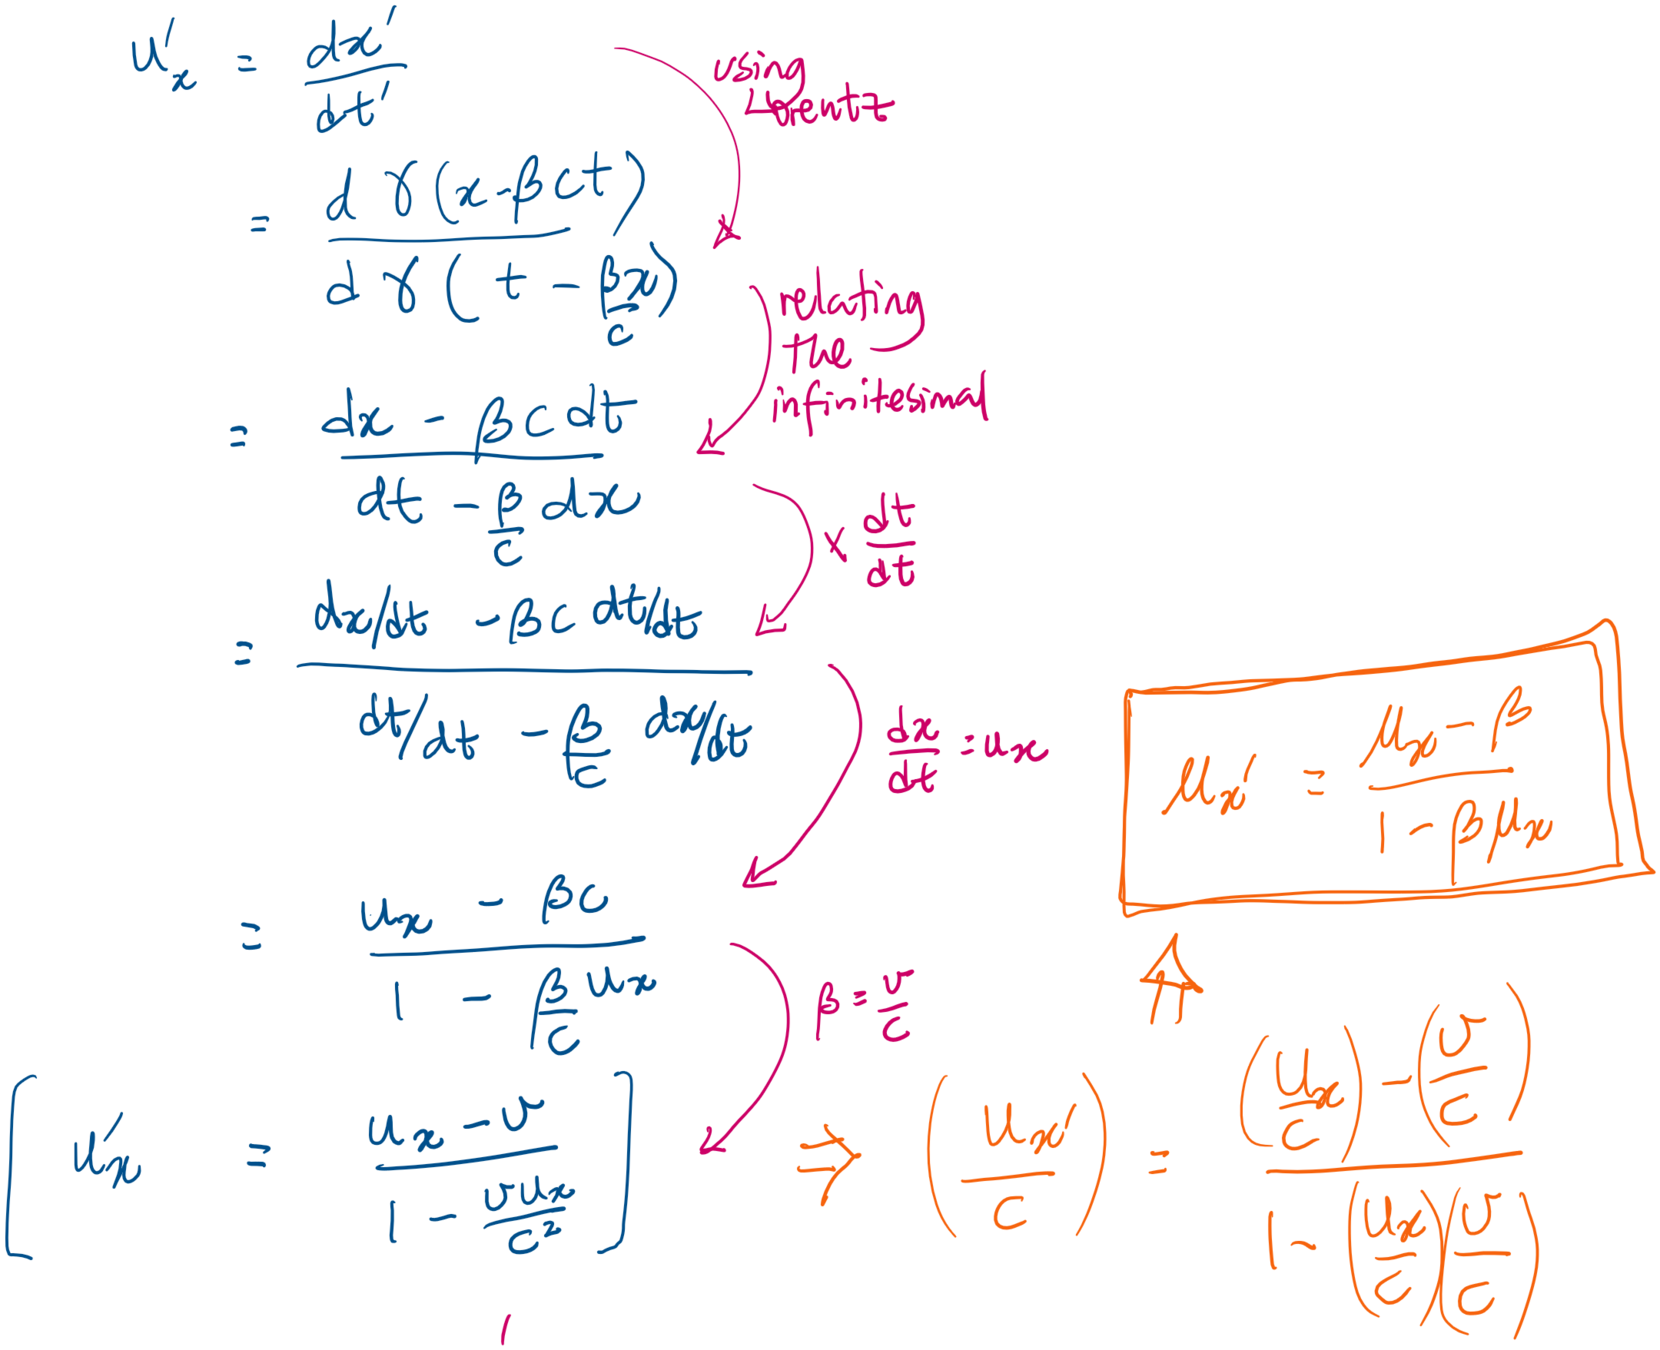 u'ₓ = dx'/dt'
using Lorentz
= d γ(x-βct) / d γ(t - βx/c)
relating the infinitesimal
= (dx - βc dt) / (dt - β/c dx)
× dt/dt
= (dx/dt - βc dt/dt) / (dt/dt - β/c dx/dt)
dx/dt = uₓ
= (uₓ - βc) / (1 - β/c uₓ)
β = v/c
[u'ₓ = (uₓ - v) / (1 - vuₓ/c²)]
⇒ (uₓ'/c) = ((uₓ/c) - (v/c)) / (1 - (uₓ/c)(v/c))
⇑
μₓ' = (μₓ - β) / (1 - βμₓ)